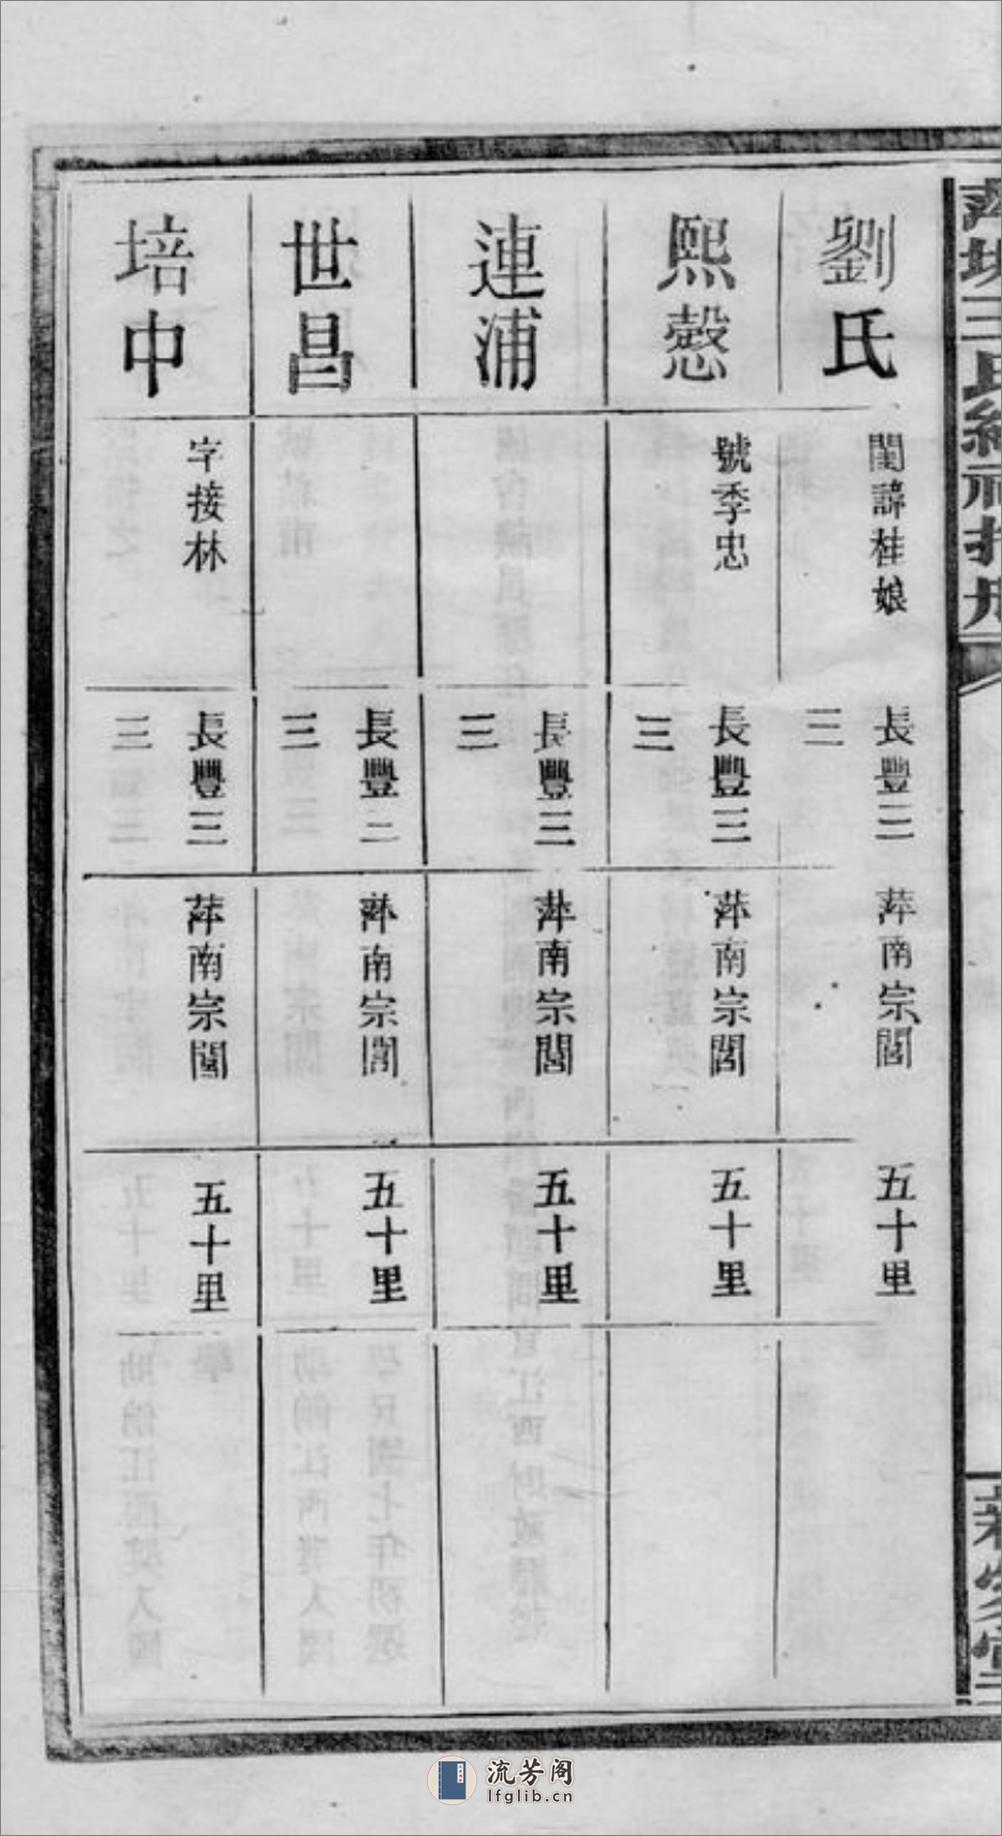 劉氏
閨諱桂娘
長豐三
三
萍南宗閣
五十里
熙愨
號季忠
長豐三
三
萍南宗閣
五十里
連浦
長豐三
三
萍南宗閣
五十里
世昌
長豐二
三
萍南宗閣
五十里
培中
字接林
長豐三
三
萍南宗閣
五十里
流芳阁
lfglib.cn